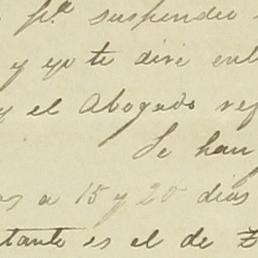 pª suspender
y yo te diré ent
y el Abogado ref
Se han
os a 15 y 20 dias
tante es el de Z